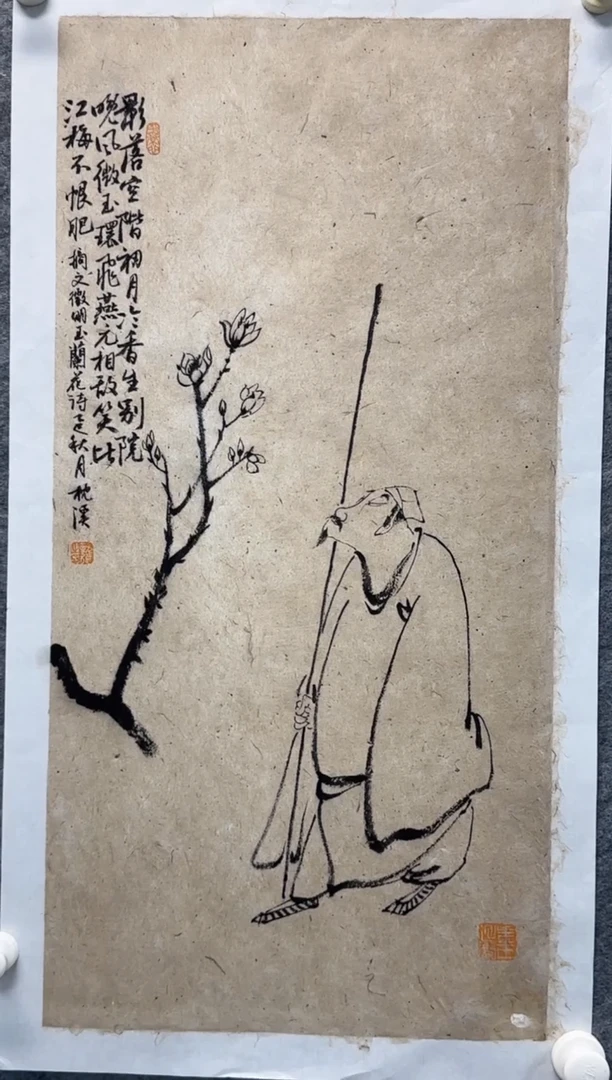 影落空階初月冷香生別院
晚風微玉環飛燕元相敵笑比
江梅不恨肥 摘文徵明玉蘭花詩 秋月 枕溪